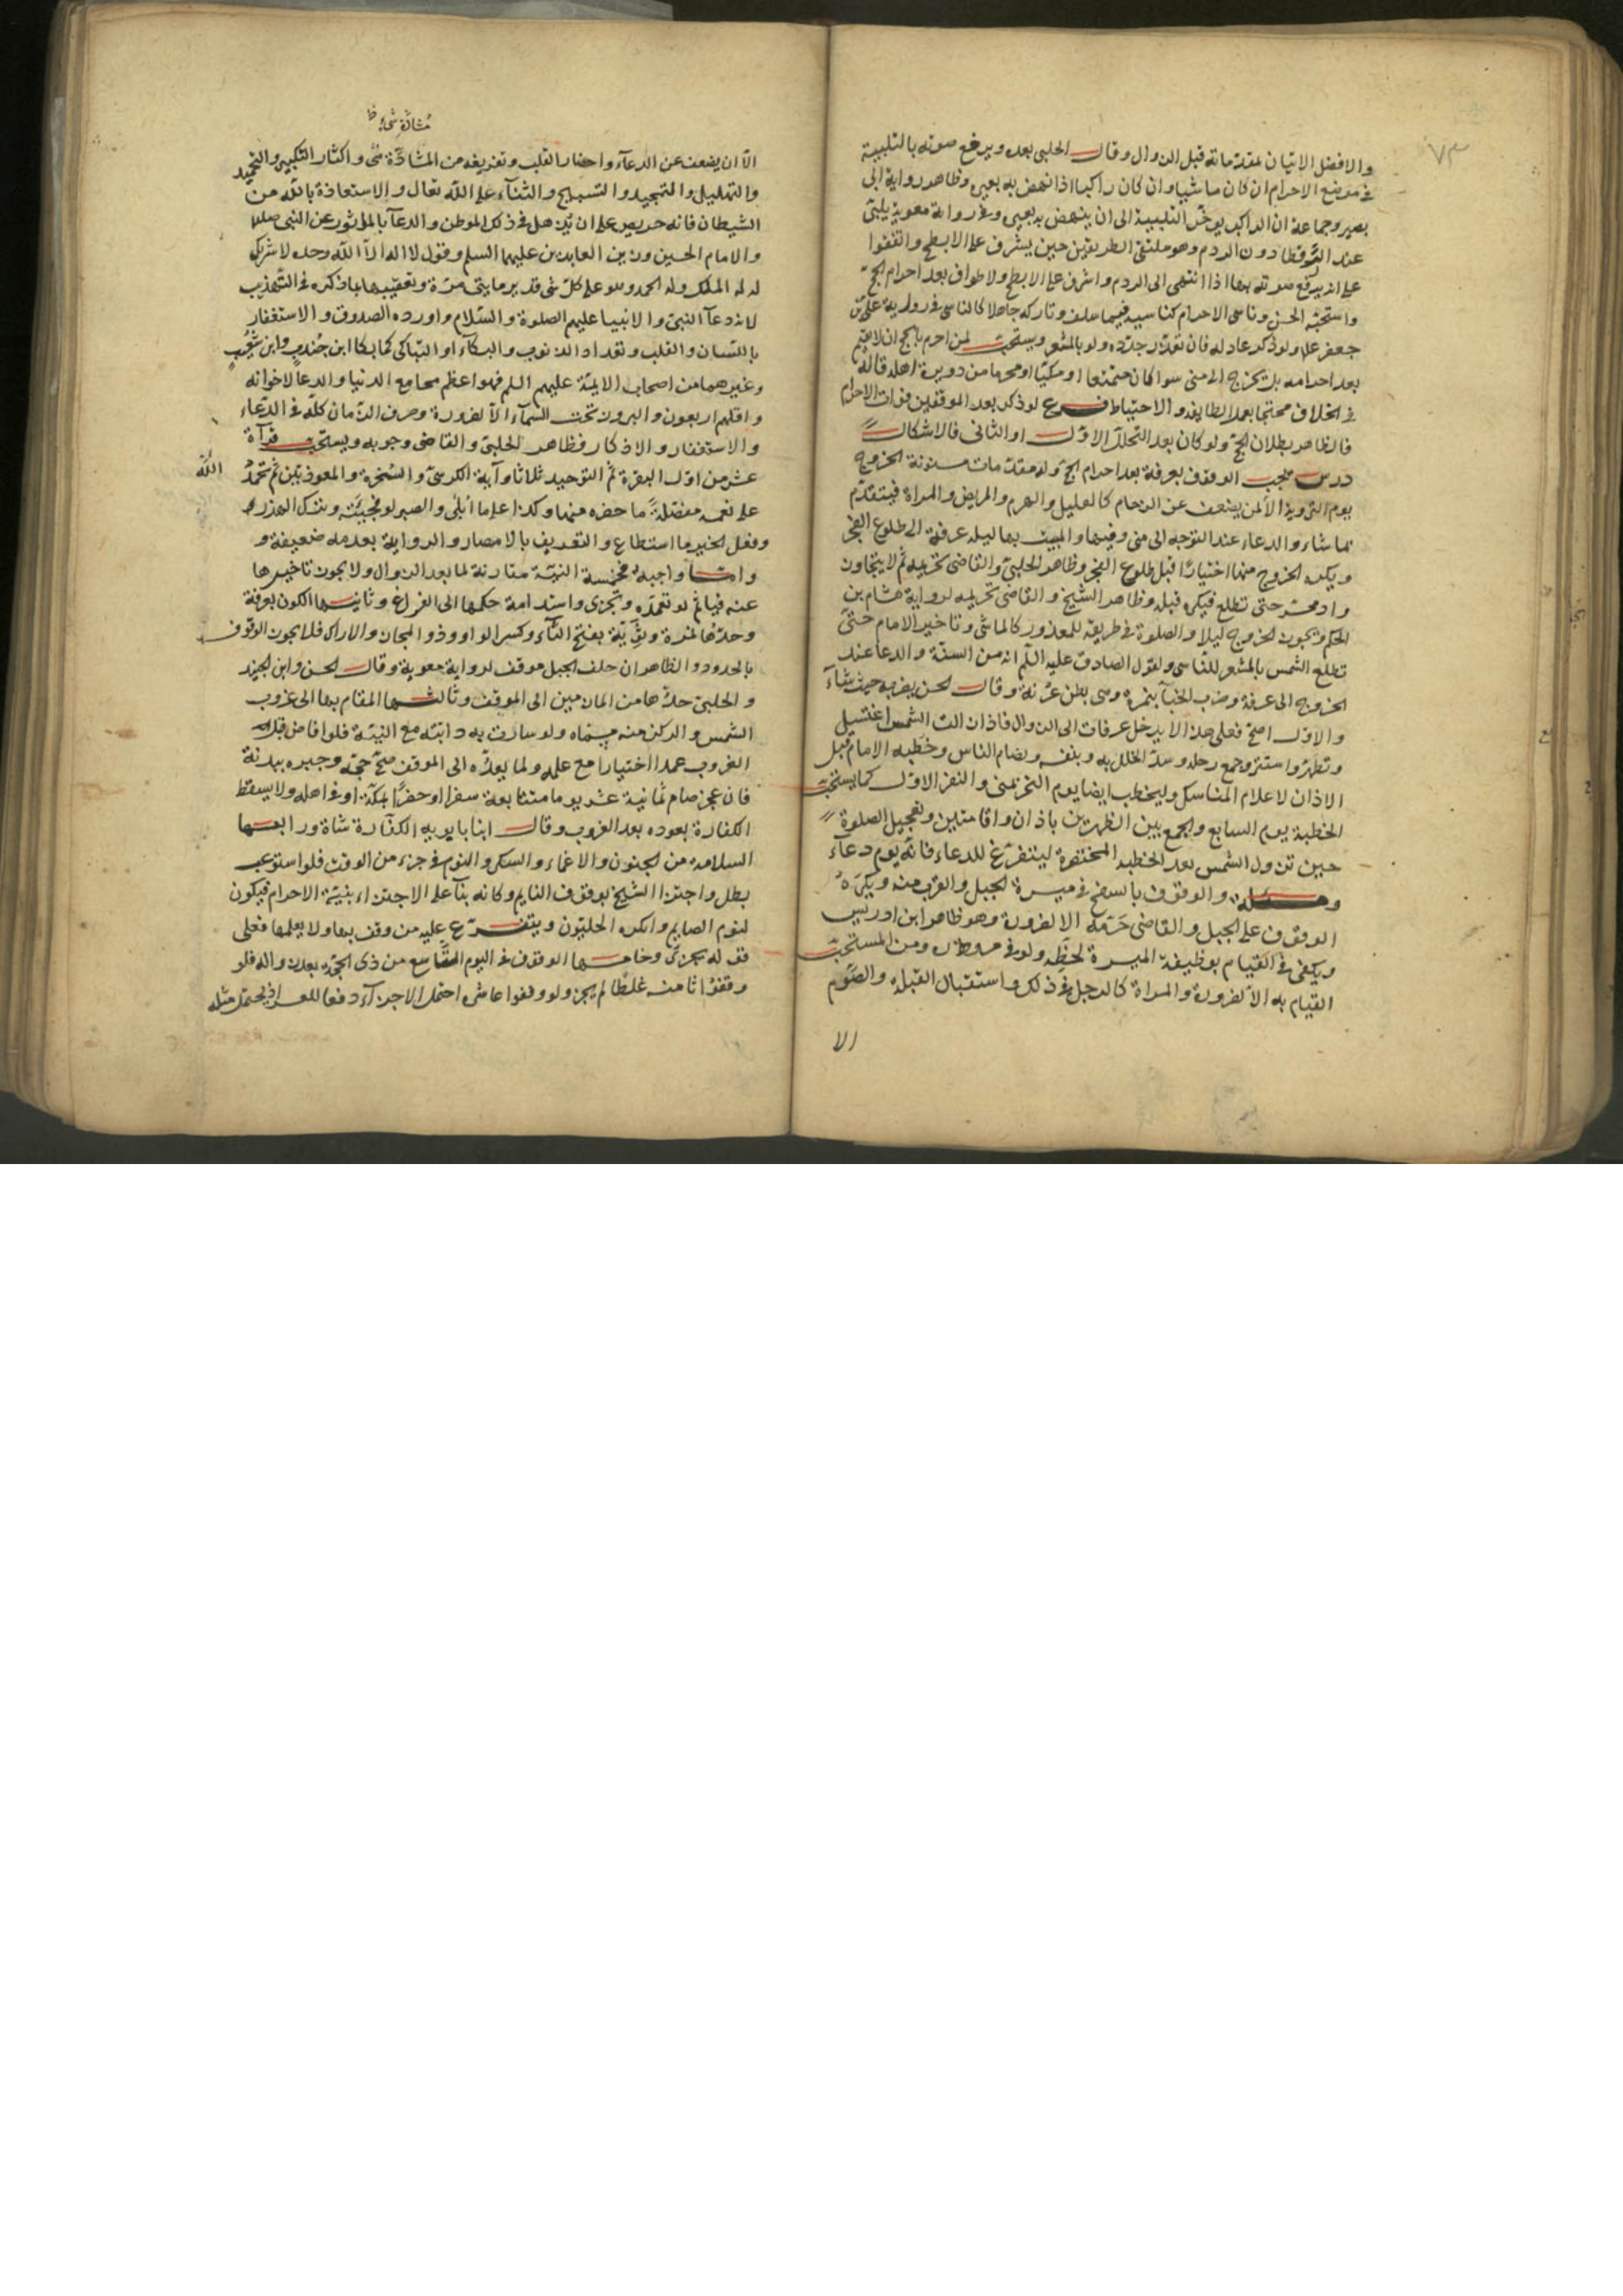 ٧٣
والافضل الاتيان بمقدماته قبل الزوال وقال الحلبي بعده ويرفع صوته بالتلبية
في موضع الاحرام ان كان ماشيا وان كان راكبا اذا نهض به بعيره وظاهر رواية ابى
بصير وجماعة ان الراكب يوخر التلبية الى ان ينهض به بعيره وفي رواية معوية يلبّى
عند الرقطا دون الردم وهو ملتقى الطريقين حين يشرف على الابطح واتفقوا
على انه يرفع صوته بها اذا انتهى الى الردم واشرف على الابطح ولا طواف بعد احرام الحج
واستحبّه الحسن وناسى الاحرام كناسيه فيما سلف وتاركه جاهلا كالناسى في رواية على بن
جعفر علا ولو ذكر عاد له فان تعذر جدّده ولو بالمشعر ويستحب لمن احرم بالحج ان لا يقيم
بعد احرامه بل يخرج الى منى سوا كان متمتعا او مكيّا او محرما من دويرة اهله قاله
في الخلاف محتجا بعمل الطايفة والاحتياط فرع لو ذكر بعد الموقفين فوات الاحرام
فالظاهر بطلان الحج ولو كان بعد التحلل الاول او الثانى فالاشكال
درس يجب الوقوف بعرفة بعد احرام الحج وله مقدمات مسنونة الخروج
يوم التروية الا لمن يضعف عن الزحام كالعليل والهرم والمريض والمراة فيتقدّم
بما شاء والدعاء عند التوجه الى منى وفيها والمبيت بها ليلة عرفة الى طلوع الفجر
ويكره الخروج منها اختيارًا قبل طلوع الفجر وظاهر الحلبى والقاضى تحريمه ثم لا يتجاوز
وادى محسر حتى تطلع فيكره قبله وظاهر الشيخ والقاضى تحريمه لرواية هشام بن
الحكم ويجوز الخروج ليلا والصلوة في طريقه للمعذور كالماشى وتاخير الامام حتى
تطلع الشمس بالمشعر للتاسى ولقول الصادق عليه السلم انه من السنة والدعا عند
الخروج الى عرفة وضرب الخبآ بنمرة وهى بطن عرنة وقال الحسن يضربه حيث شآء
والاول اصح فعلى هذا لا يدخل عرفات الى الزوال فاذا زالت الشمس اغتسل
وتطهّر واستتر وجمع رحله وسدّ الخلل به وبنفسه وبضام الناس وخطبه الامام قبل
الاذان لاعلام المناسك وليخطب ايضا يوم النحر بمنى والنفر الاول كما يستحب
الخطبة يوم السابع والجمع بين الظهرين باذان واقامتين وتعجيل الصلوة
حين تزول الشمس بعد الخطبة المختصرة ليتفرغ للدعاء فانه يوم دعآء
ومسئلة والوقوف بالسفح في ميسرة الجبل والقرب منه ويكره
الوقوف على الجبل والقاضى حرّمه الا لضرورة وهو ظاهر ابن ادريس
ويكفى في القيام بوظيفة الميسرة لحظة ولو في مروره ومن المستحب
القيام به الا لضرورة والمراة كالرجل في ذلك واستقبال القبلة والصّوم
الا
مُشادّة شىء ظ
الا ان يضعف عن الدعآء واحضار القلب وتفريغه من المشادّة شى واكثار التكبير والتحميد
والتهليل والتمجيد والتسبيح والثنآء على الله تعالى والاستعاذة بالله من
الشيطان فانه حريص على ان يذهل في ذلك الموطن والدعآ بالماثور عن النبى صلى
والامام الحسين وزين العابدين عليهما السلم وقول لا اله الا الله وحده لا شريك
له له الملك وله الحمد وهو على كل شى قدير مايتى مرّة وتعقيبها بما ذكره في التهذيب
لانه دعآ النبى والانبيا عليهم الصلوة والسّلام واورده الصدوق والاستغفار
باللسان والقلب وتعداد الذنوب والبكآء او التباكى كما بكا ابن جندب وابن شعيب
وغيرهما من اصحاب الايمّة عليهم السلم فهو اعظم مجامع الدنيا والدعآ لاخوانه
واقلهم اربعون والبروز تحت السمآء الا لضرورة وصرف الزمان كلّه في الدعاء
والاستغفار والاذكار فظاهر الحلبى والقاضى وجوبه ويستحب قرآة
عشر من اول البقرة ثم التوحيد ثلاثا وآية الكرسىّ والسخرة والمعوذتين ثم تحمد
الله
على نعمه مفصّلة ما حضره منها وكذا على ما ابلى والصبر لو فجيّته وبترك الهذر
وفعل الخير ما استطاع والتعريف بالامصار والرواية بعدمه ضعيفة و
وامّا واجبه فخمسة النيّة مقارنة لما بعد الزوال ولا يجوز تاخيرها
عنه فياثم لو تعمّده ويجزى واستدامة حكمها الى الفراغ وثانيها الكون بعرفة
وحدّها نمرة وثَوِيَّة بفتح الثآء وكسر الواو وذو المجاز والاراك فلا يجوز الوقوف
بالحدود والظاهر ان خلف الجبل موقف لرواية معوية وقال الحسن وابن الجنيد
والحلبى حدّها من المازمين الى الموقف وثالثها المقام بها الى غروب
الشمس والركن منه مسمّاه ولو سارت به دابته مع النيّة فلو افاض قبل
الغروب عمدا اختيارا مع علمه ولما يعدّه الى الموقف صحّ حجّه وجبره ببدنة
فان عجز صام ثمانية عشر يوما متتابعة سفرا او حضرًا بمكّة او في اهله ولا يسقط
الكفارة بعوده بعد الغروب وقال ابنا بابويه الكفّارة شاة ورابعها
السلامة من الجنون والاغماء والسكر والنوم في جزء من الوقت فلو استوعب
بطل واجتزا الشيخ بوقوف النايم وكانه بنآ على الاجتزاء بنيّة الاحرام فيكون
كنوم الصايم وانكره الحليّون ويتفرّع عليه من وقف بها ولا يعلمها فعلى
قوله يجزى وخامسها الوقوف في اليوم التاسع من ذى الحجّة بعد زواله فلو
وقفوا ثامنه غلطًا لم يجز ولو وقفوا عاشره احتمل الاجزآء دفعا للعسر اذ يحتمل مثله